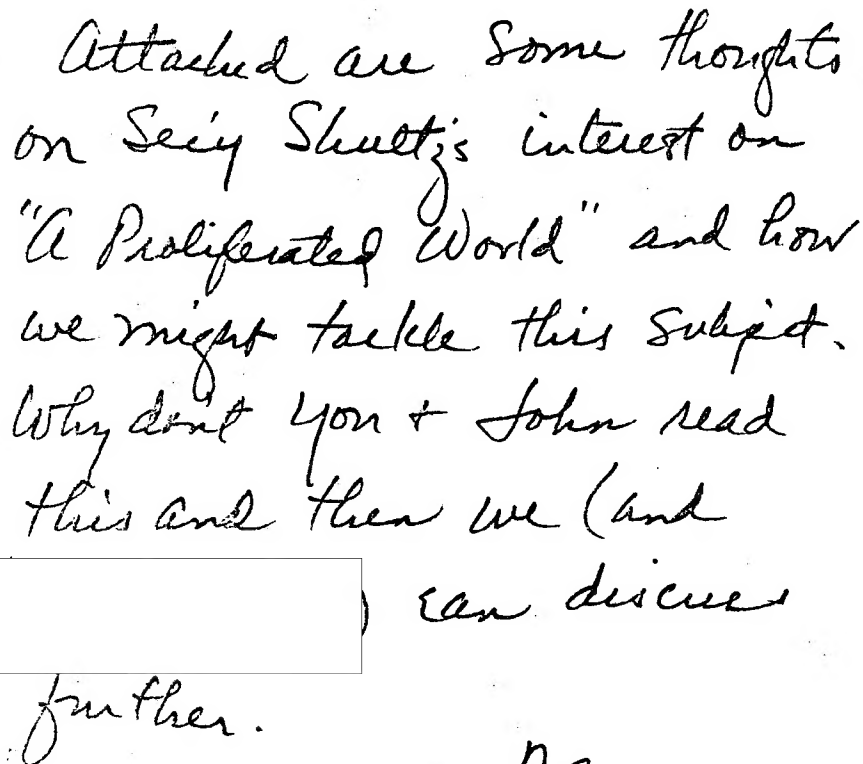 Attached are some thoughts
on Sec'y Shultz's interest on
"A Proliferated World" and how
we might tackle this subject.
Why don't you + John read
this and then we (and
) can discuss
further.